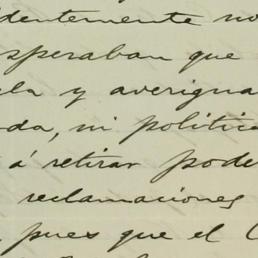 dentemente no
speraban que
la y averigua
da, ni politic
á retirar pode
reclamaciones
pues que el C